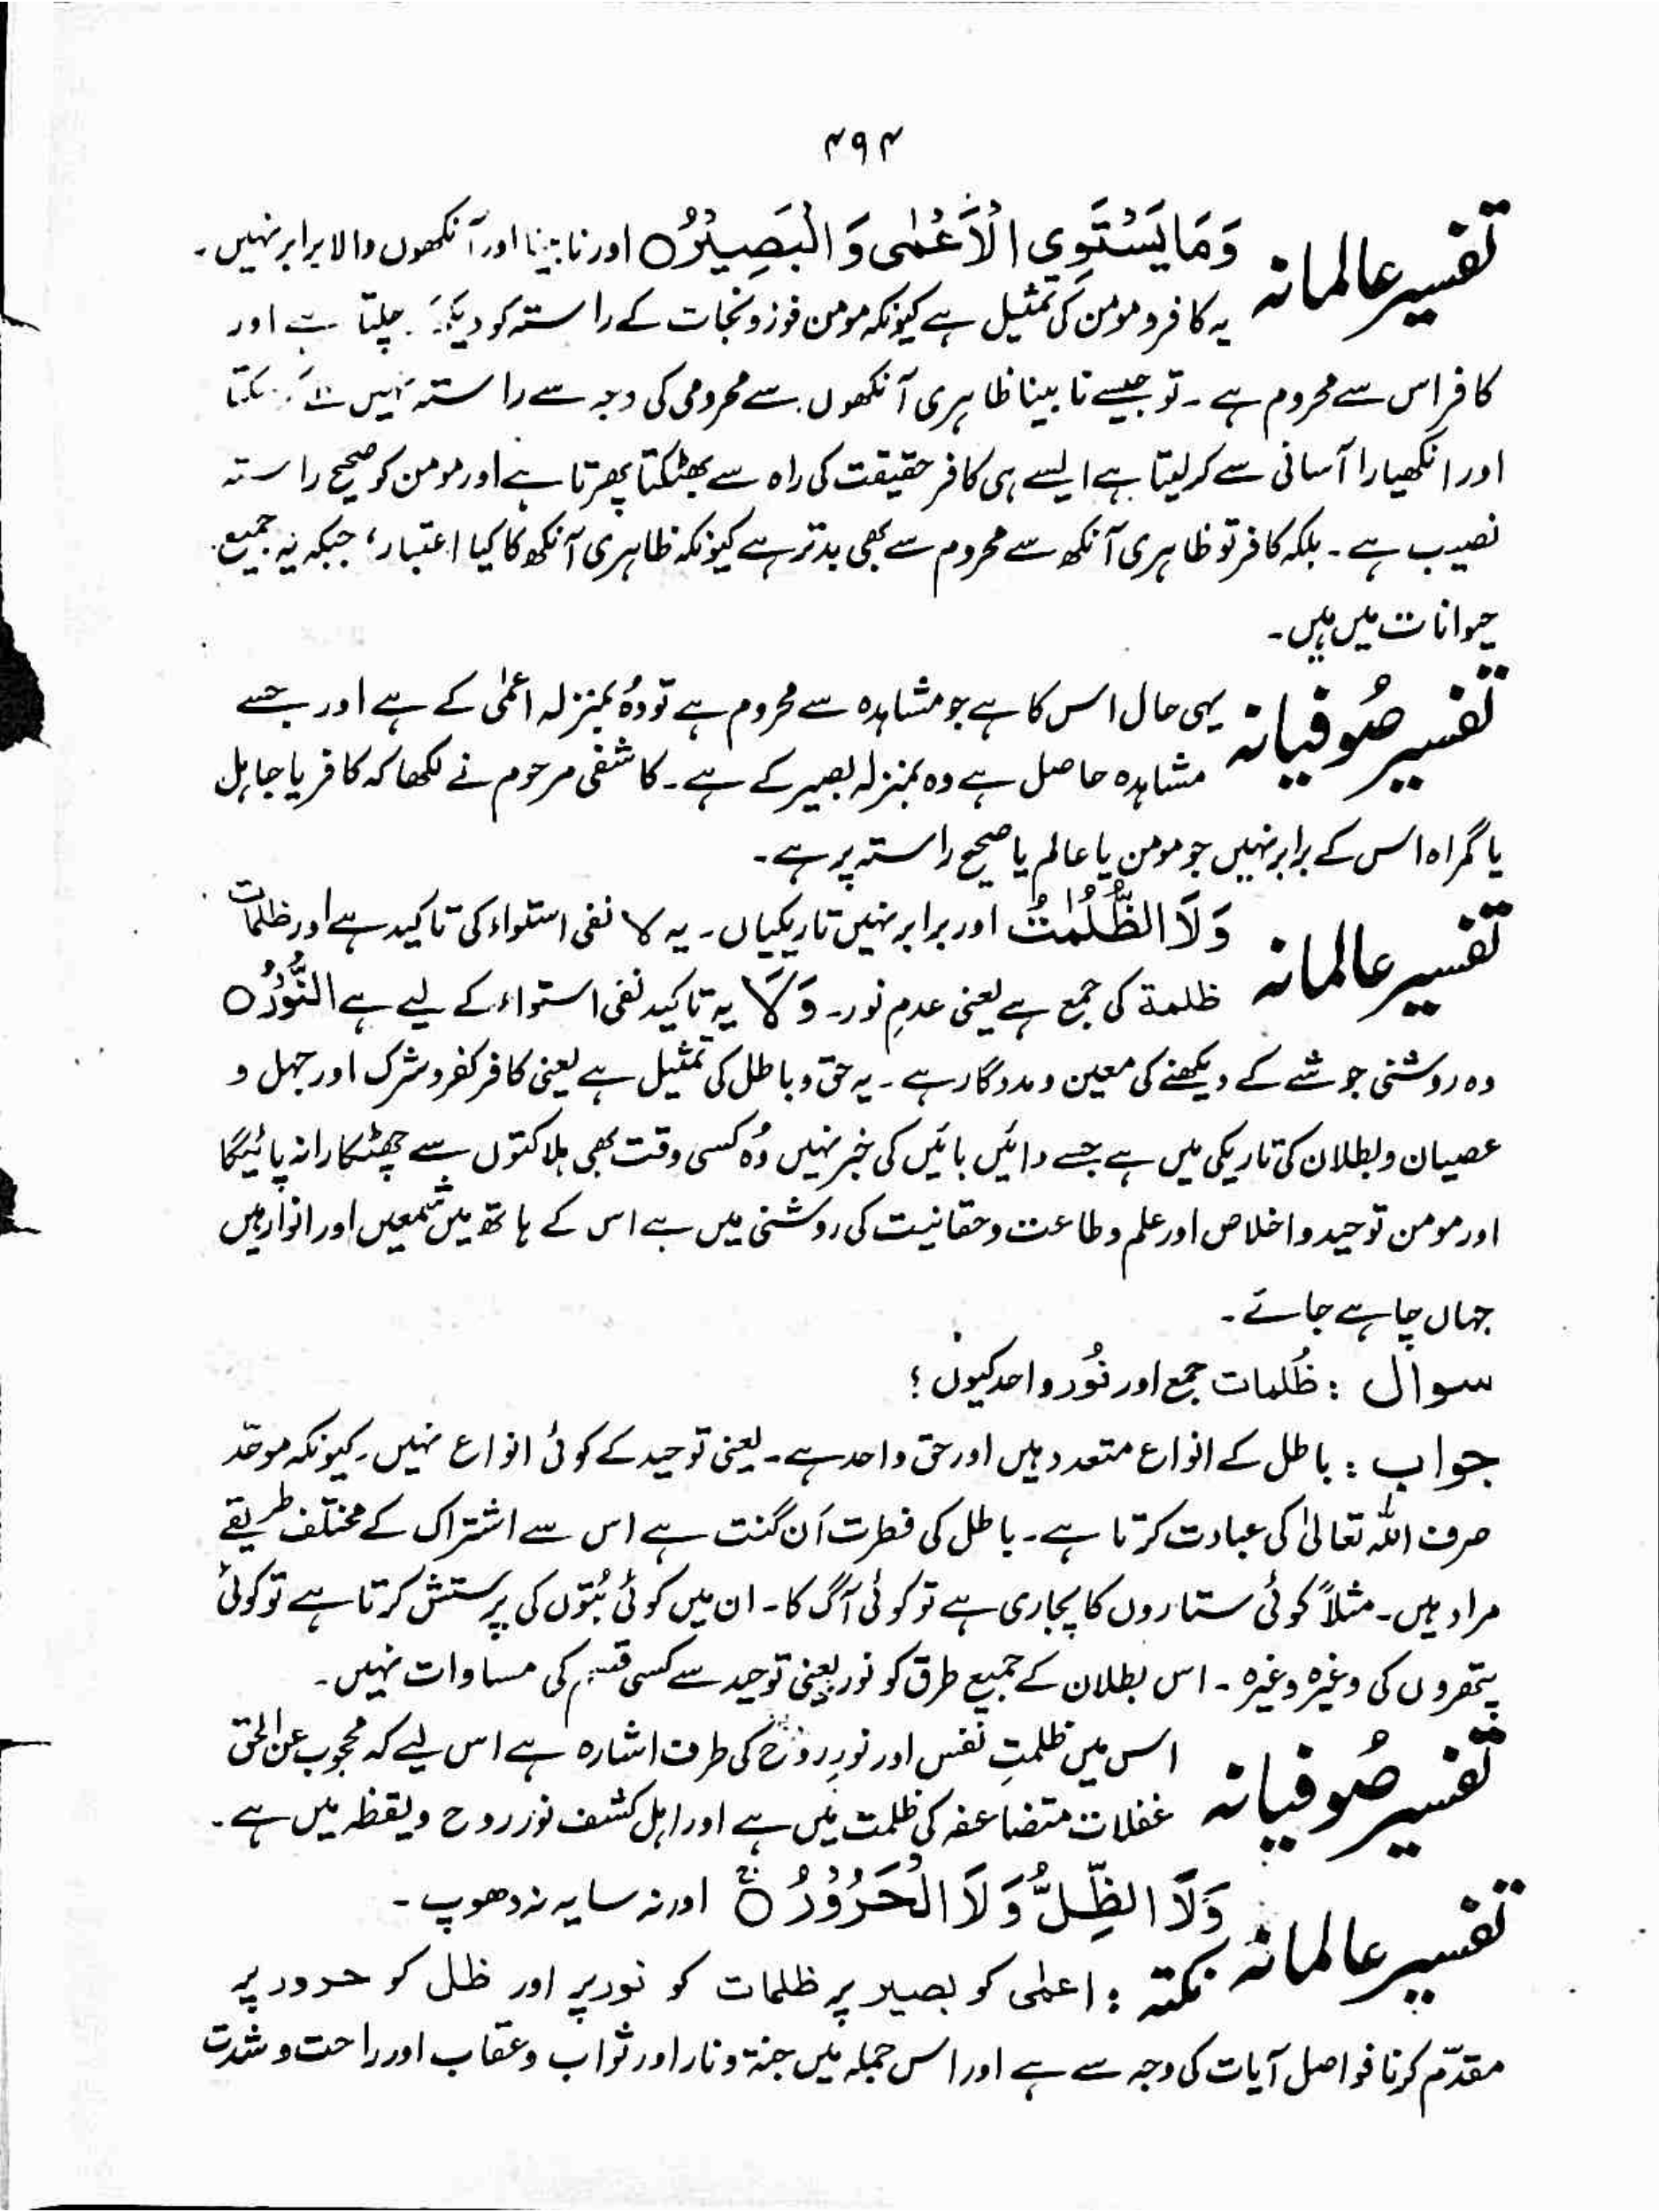 ۴۹۴
تفسیر عالمانہ وَمَا يَسْتَوِي الْاَعْمٰى وَ الْبَصِيْرُ○ اور نابینا اور آنکھوں والا برابر نہیں۔
یہ کافر و مومن کی تمثیل ہے کیونکہ مومن فوز و نجات کے راستہ کو دیکھ کر چلتا ہے اور
کافر اس سے محروم ہے۔ تو جیسے نابینا ظاہری آنکھوں سے محرومی کی وجہ سے راستہ نہیں
اور انکھیارا آسانی سے کرلیتا ہے ایسے ہی کافر حقیقت کی راہ سے بھٹکتا پھرتا ہے اور مومن کو صحیح راستہ
نصیب ہے۔ بلکہ کافر تو ظاہری آنکھ سے محروم سے بھی بدتر ہے کیونکہ ظاہری آنکھ کا کیا اعتبار، جبکہ یہ جمیع
حیوانات میں ہیں۔
تفسیر صُوفیانہ یہی حال اس کا ہے جو مشاہدہ سے محروم ہے تو وُہ بمنزلہ اعمٰی کے ہے اور جسے
مشاہدہ حاصل ہے وہ بمنزلہ بصیر کے ہے۔ کاشفی مرحوم نے لکھا کہ کافر یا جاہل
یا گمراہ اس کے برابر نہیں جو مومن یا عالم یا صحیح راستہ پر ہے۔
تفسیر عالمانہ وَلَا الظُّلُمٰتُ اور برابر نہیں تاریکیاں۔ یہ لا نفی استواء کی تاکید ہے اور ظلمات
ظلمة کی جمع ہے یعنی عدمِ نور۔ وَلَا یہ تاکید نفی استواء کے لیے ہے النُّوْرُ○
وہ روشنی جو شے کے دیکھنے کی معین و مددگار ہے۔ یہ حق و باطل کی تمثیل ہے یعنی کافر کفر و شرک اور جہل و
عصیان و بطلان کی تاریکی میں ہے جسے دائیں بائیں کی خبر نہیں وُہ کسی وقت بھی ہلاکتوں سے چھٹکارا نہ پائیگا
اور مومن توحید و اخلاص اور علم و طاعت و حقانیت کی روشنی میں ہے اس کے ہاتھ میں شمعیں اور انوار ہیں
جہاں چاہے جائے۔
سوال : ظُلمات جمع اور نُور واحد کیوں ؟
جواب : باطل کے انواع متعدد ہیں اور حق واحد ہے۔ یعنی توحید کے کوئی انواع نہیں۔ کیونکہ موحّد
صرف اللہ تعالیٰ کی عبادت کرتا ہے۔ باطل کی فطرت اَن گنت ہے اس سے اشتراک کے مختلف طریقے
مراد ہیں۔ مثلاً کوئی ستاروں کا پجاری ہے تو کوئی آگ کا۔ ان میں کوئی بُتوں کی پرستش کرتا ہے تو کوئی
پتھروں کی وغیرہ وغیرہ۔ اس بطلان کے جمیع طرق کو نور یعنی توحید سے کسی قسم کی مساوات نہیں۔
تفسیر صُوفیانہ اس میں ظلمتِ نفس اور نورِ روح کی طرف اشارہ ہے اس لیے کہ محجوب عن الحق
غفلات متضاعفہ کی ظلمت میں ہے اور اہل کشف نور روح و یقظہ میں ہے۔
تفسیر عالمانہ وَلَا الظِّلُّ وَلَا الْحَرُوْرُ○ اور نہ سایہ نہ دھوپ۔
نکتہ : اعمٰی کو بصیر پر ظلمات کو نور پر اور ظل کو حرور پر
مقدّم کرنا فواصل آیات کی وجہ سے ہے اور اس جملہ میں جنۃ و نار اور ثواب و عقاب اور راحت و شدت